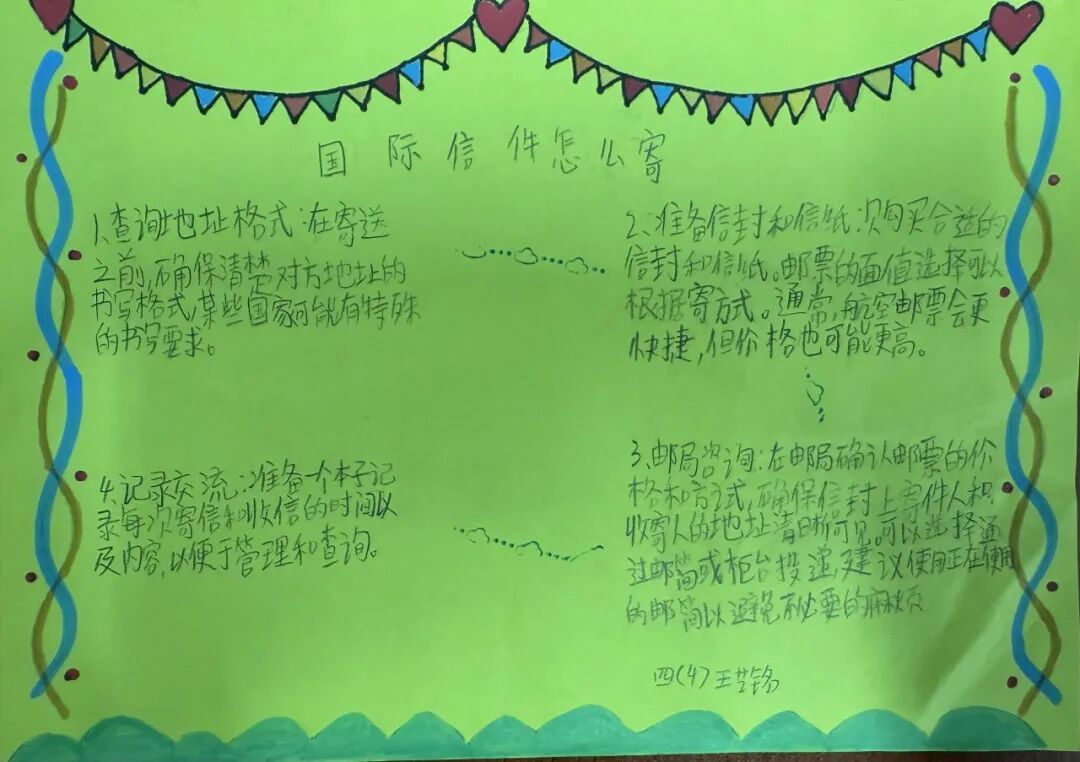 国际信件怎么寄
1.查询地址格式:在寄送
之前,确保清楚对方地址的
书写格式,某些国家可能有特殊
的书写要求。
2.准备信封和信纸:购买合适的
信封和信纸。邮票的面值选择可以
根据寄方式。通常,航空邮票会更
快捷,但价格也可能更高。
3.邮局咨询:在邮局确认邮票的价
格和方式,确保信封上寄件人和
收寄人的地址清晰可见。可以选择通
过邮筒或柜台投递,建议使用正在使用
的邮筒以避免不必要的麻烦
4.记录交流:准备一个本子记
录每次寄信和收信的时间以
及内容,以便于管理和查询。
四(4)王